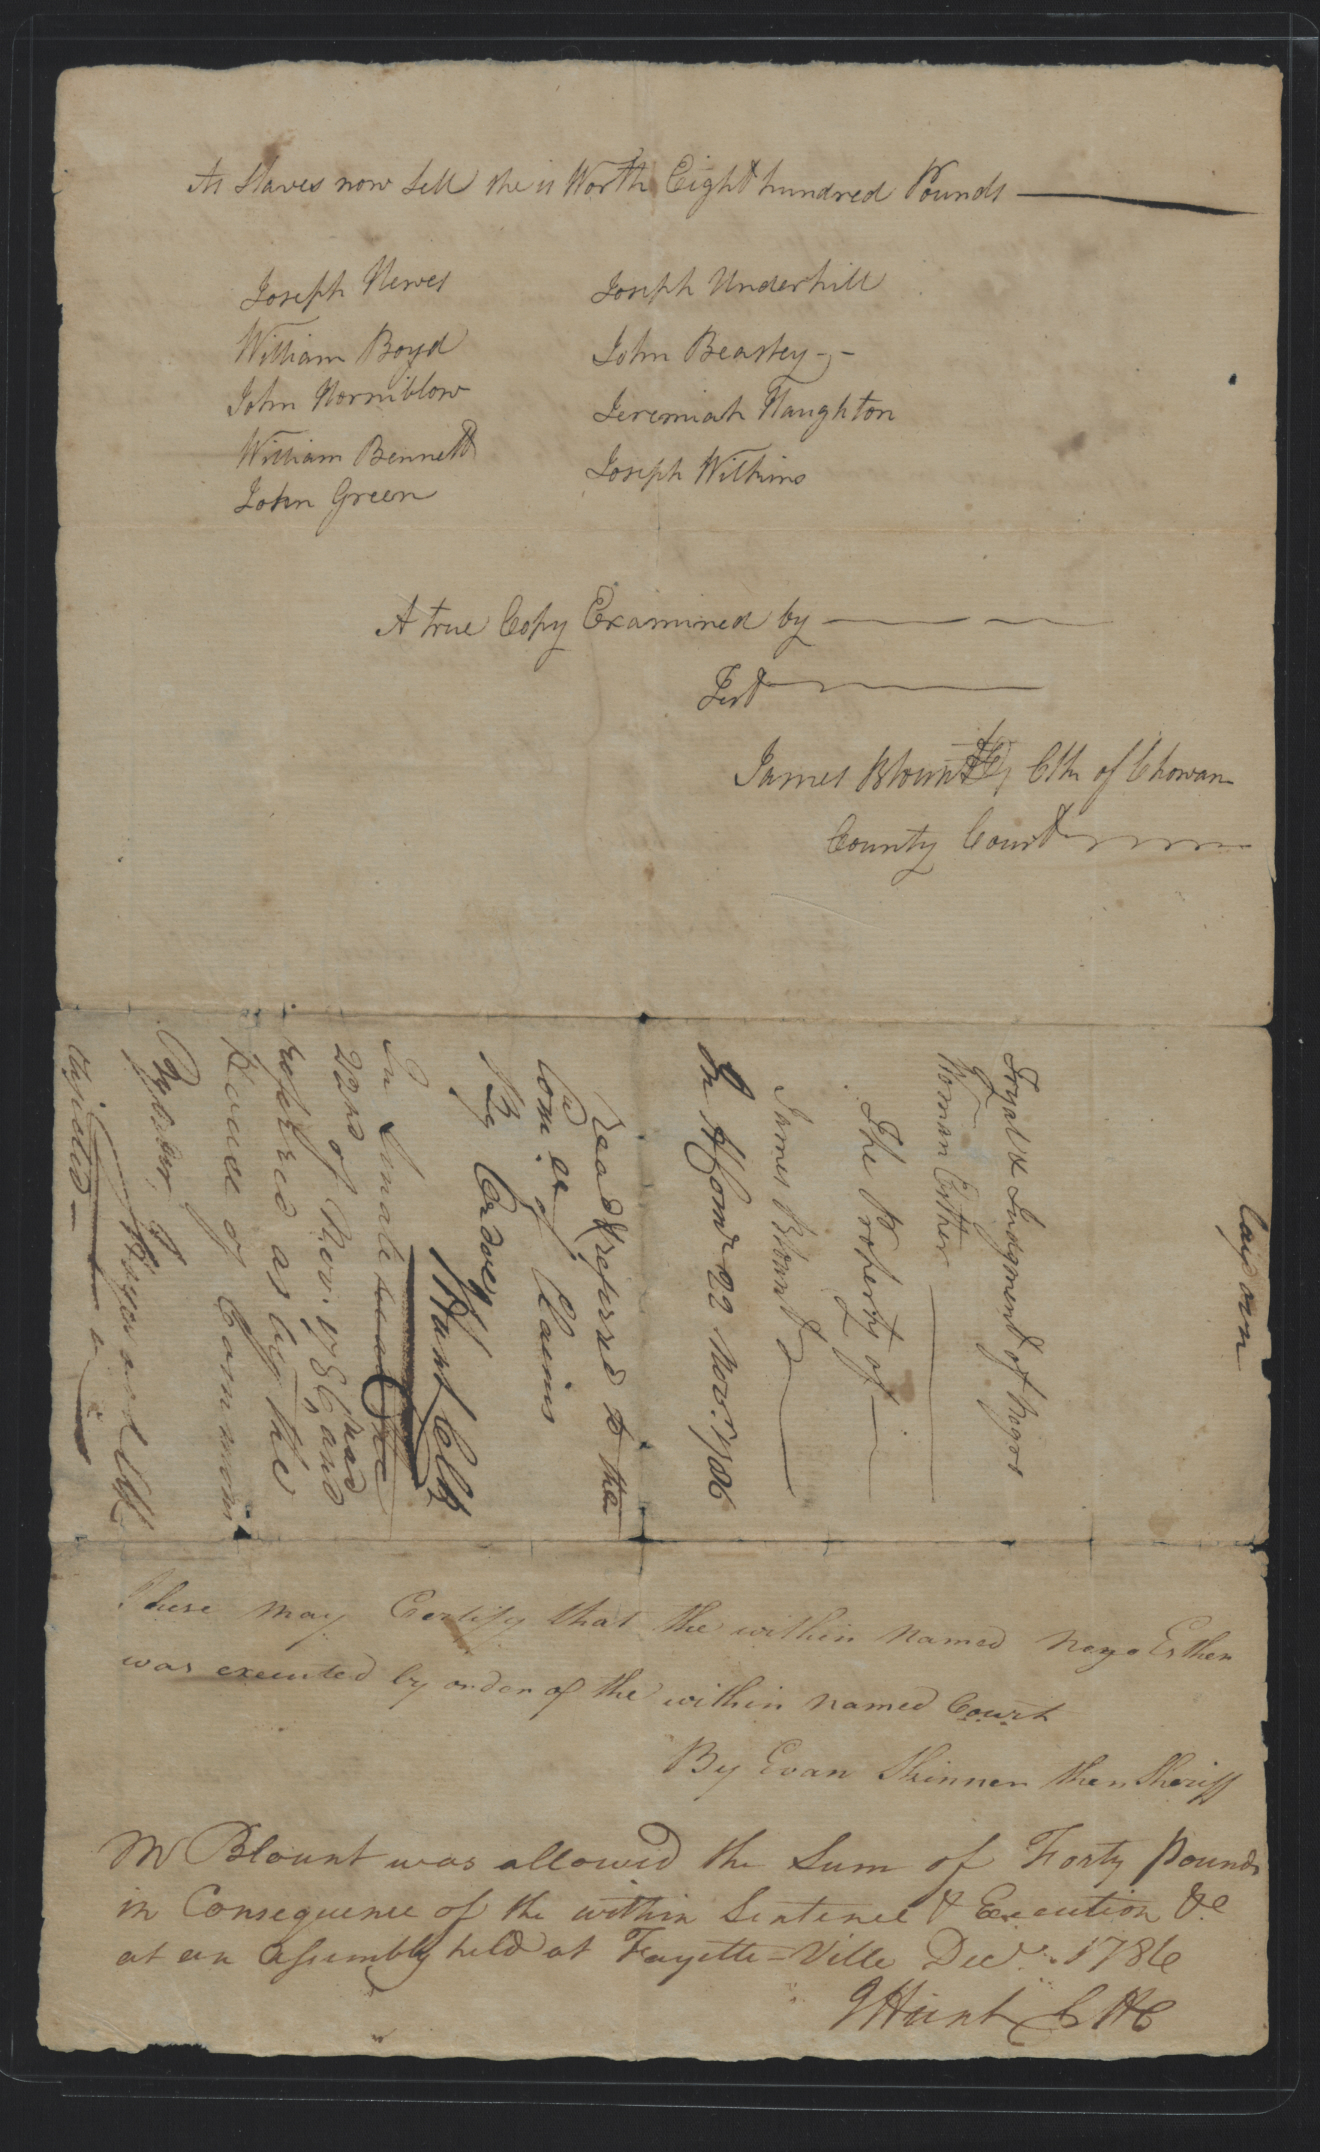 As Slaves now Sell she is Worth Eight hundred Pounds
Joseph Hewes
William Boyd
John Horniblow
William Bennett
John Green
Joseph Underhill
John Beasley
Jeremiah Haughton
Joseph Wilkins
A true Copy Examined by
Test
James Blount Clk of Chowan
County Court
Laid over
Tryal & Judgment of Negro
Woman Esther
The Property of
James Blount
In H Com. 22 Nov. 1786
read & referred to the
Com.ee of Claims
By Order
J Hunt Clk
In Senate
22nd of Nov. 1786 read and
referred as by the
House of Commons
By order
rejected
These may Certify that the within Named Nego Esther
was executed by order of the within named Court
By Evan Skinner then Sheriff
Mr Blount was allowed the Sum of Forty Pounds
in Consequence of the within Sentence & Execution &c
at an Assembly held at Fayette-Ville Decr. 1786
J Hunt C H C